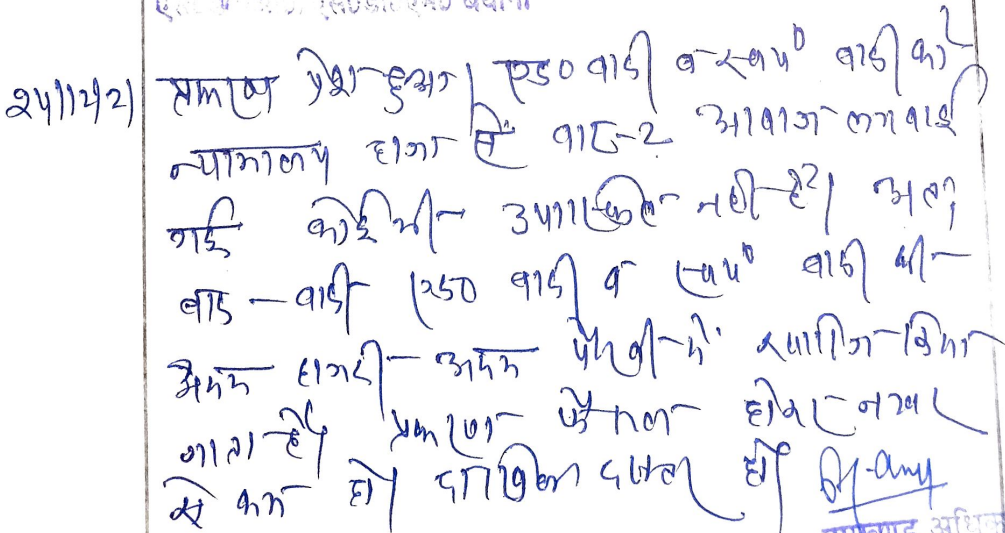 24/12/21 प्रकरण पेश हुआ। एड० वादी व स्वयं वादी को
न्यायालय द्वारा से वार-2 आवाज लगवाई
गई कोई भी उपस्थित नहीं है। अतः
वाद - वादी एड० वादी व स्वयं वादी की
अदम हाजरी अदम पैरवी में खारिज किया
जाता है। प्रकरण फैसल होकर नम्बर
से कम हो। दाखिल दफ्तर हो।